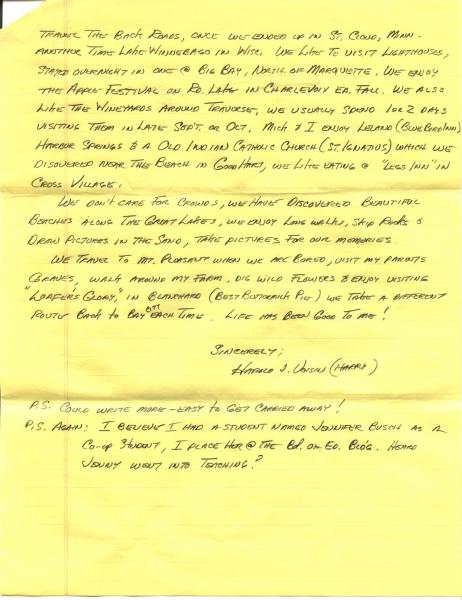 TRAVEL THE BACK ROADS, ONCE WE ENDED UP IN ST. CLOUD, MINN.
ANOTHER TIME LAKE WINNEBAGO IN WISC. WE LIKE TO VISIT LIGHTHOUSES,
STAYED OVERNIGHT IN ONE @ BIG BAY, NORTH OF MARQUETTE. WE ENJOY
THE APPLE FESTIVAL ON RD. LAKE IN CHARLEVOIX EA. FALL. WE ALSO
LIKE THE WINEYARDS AROUND TRAVERSE, WE USUALLY SPEND 1 OR 2 DAYS
VISITING THEM IN LATE SEPT. OR OCT. MICK & I ENJOY LELAND (BLUE BIRD INN)
HARBOR SPRINGS & A OLD INDIAN CATHOLIC CHURCH (ST. IGNATIUS) WHICH WE
DISCOVERED NEAR THE BEACH IN GOOD HART, WE LIKE EATING @ "LEGS INN" IN
CROSS VILLAGE.
WE DON'T CARE FOR CROWDS, WE HAVE DISCOVERED BEAUTIFUL
BEACHES ALONG THE GREAT LAKES, WE ENJOY LONG WALKS, SKIP ROCKS &
DRAW PICTURES IN THE SAND, TAKE PICTURES FOR OUR MEMORIES.
WE TRAVEL TO MT. PLEASANT WHEN WE ARE BORED, VISIT MY PARENTS
GRAVES, WALK AROUND MY FARM, DIG WILD FLOWERS & ENJOY VISITING
"LOAFERS GLORY," IN BLANCHARD (BEST BUTTERMILK PIE) WE TAKE A DIFFERENT
ROUTE BACK TO BAY CITY EACH TIME. LIFE HAS BEEN GOOD TO ME!
SINCERELY;
HAROLD J. (HARRY)
P.S. COULD WRITE MORE - EASY TO GET CARRIED AWAY!
P.S. AGAIN: I BELIEVE I HAD A STUDENT NAMED JENNIFER BUSCH AS A
CO-OP STUDENT, I PLACE HER @ THE BD. OF ED. BLDG. HEARD
JENNY WENT INTO TEACHING?